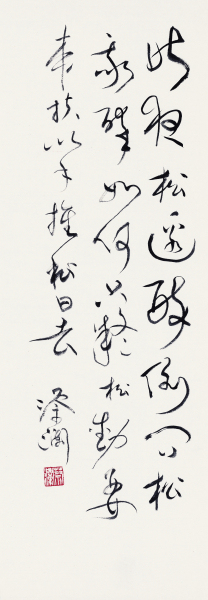 昨夜松邊醉倒問松
我醉如何只疑松動要
來扶以手推松曰去